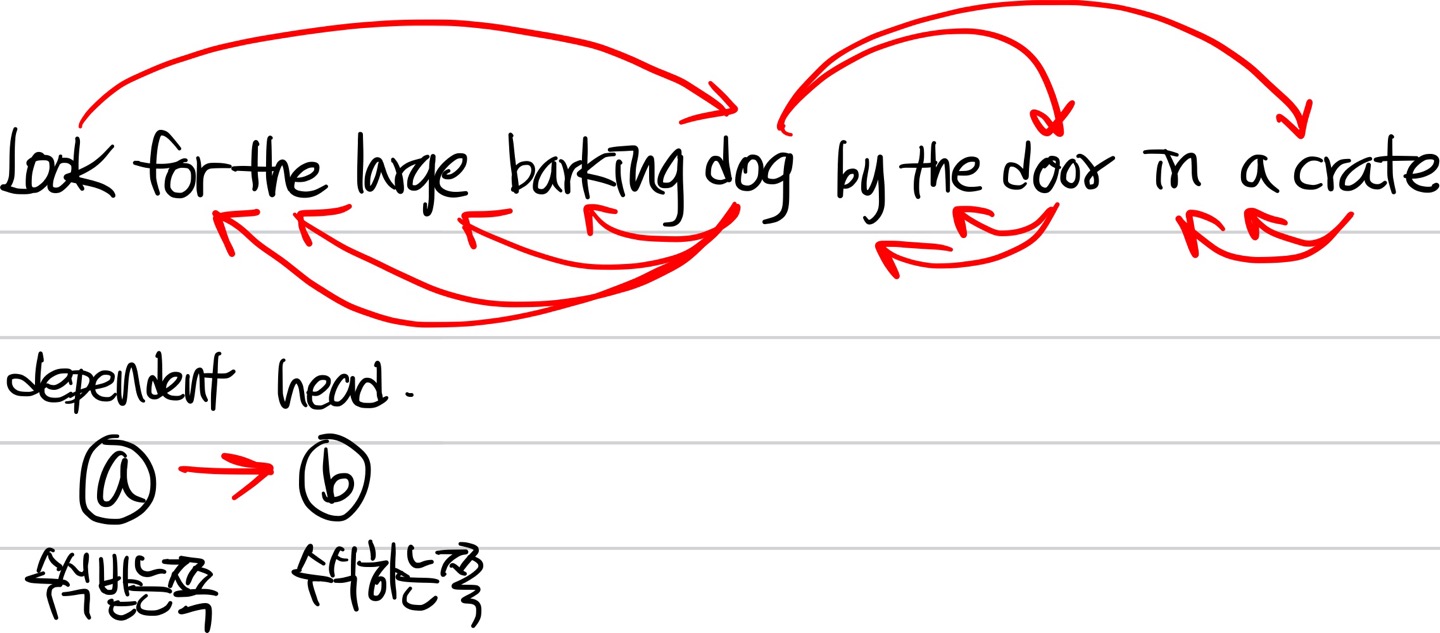 Look for the large barking dog by the door in a crate
dependent head.
a → b
수식받는쪽 수식하는쪽